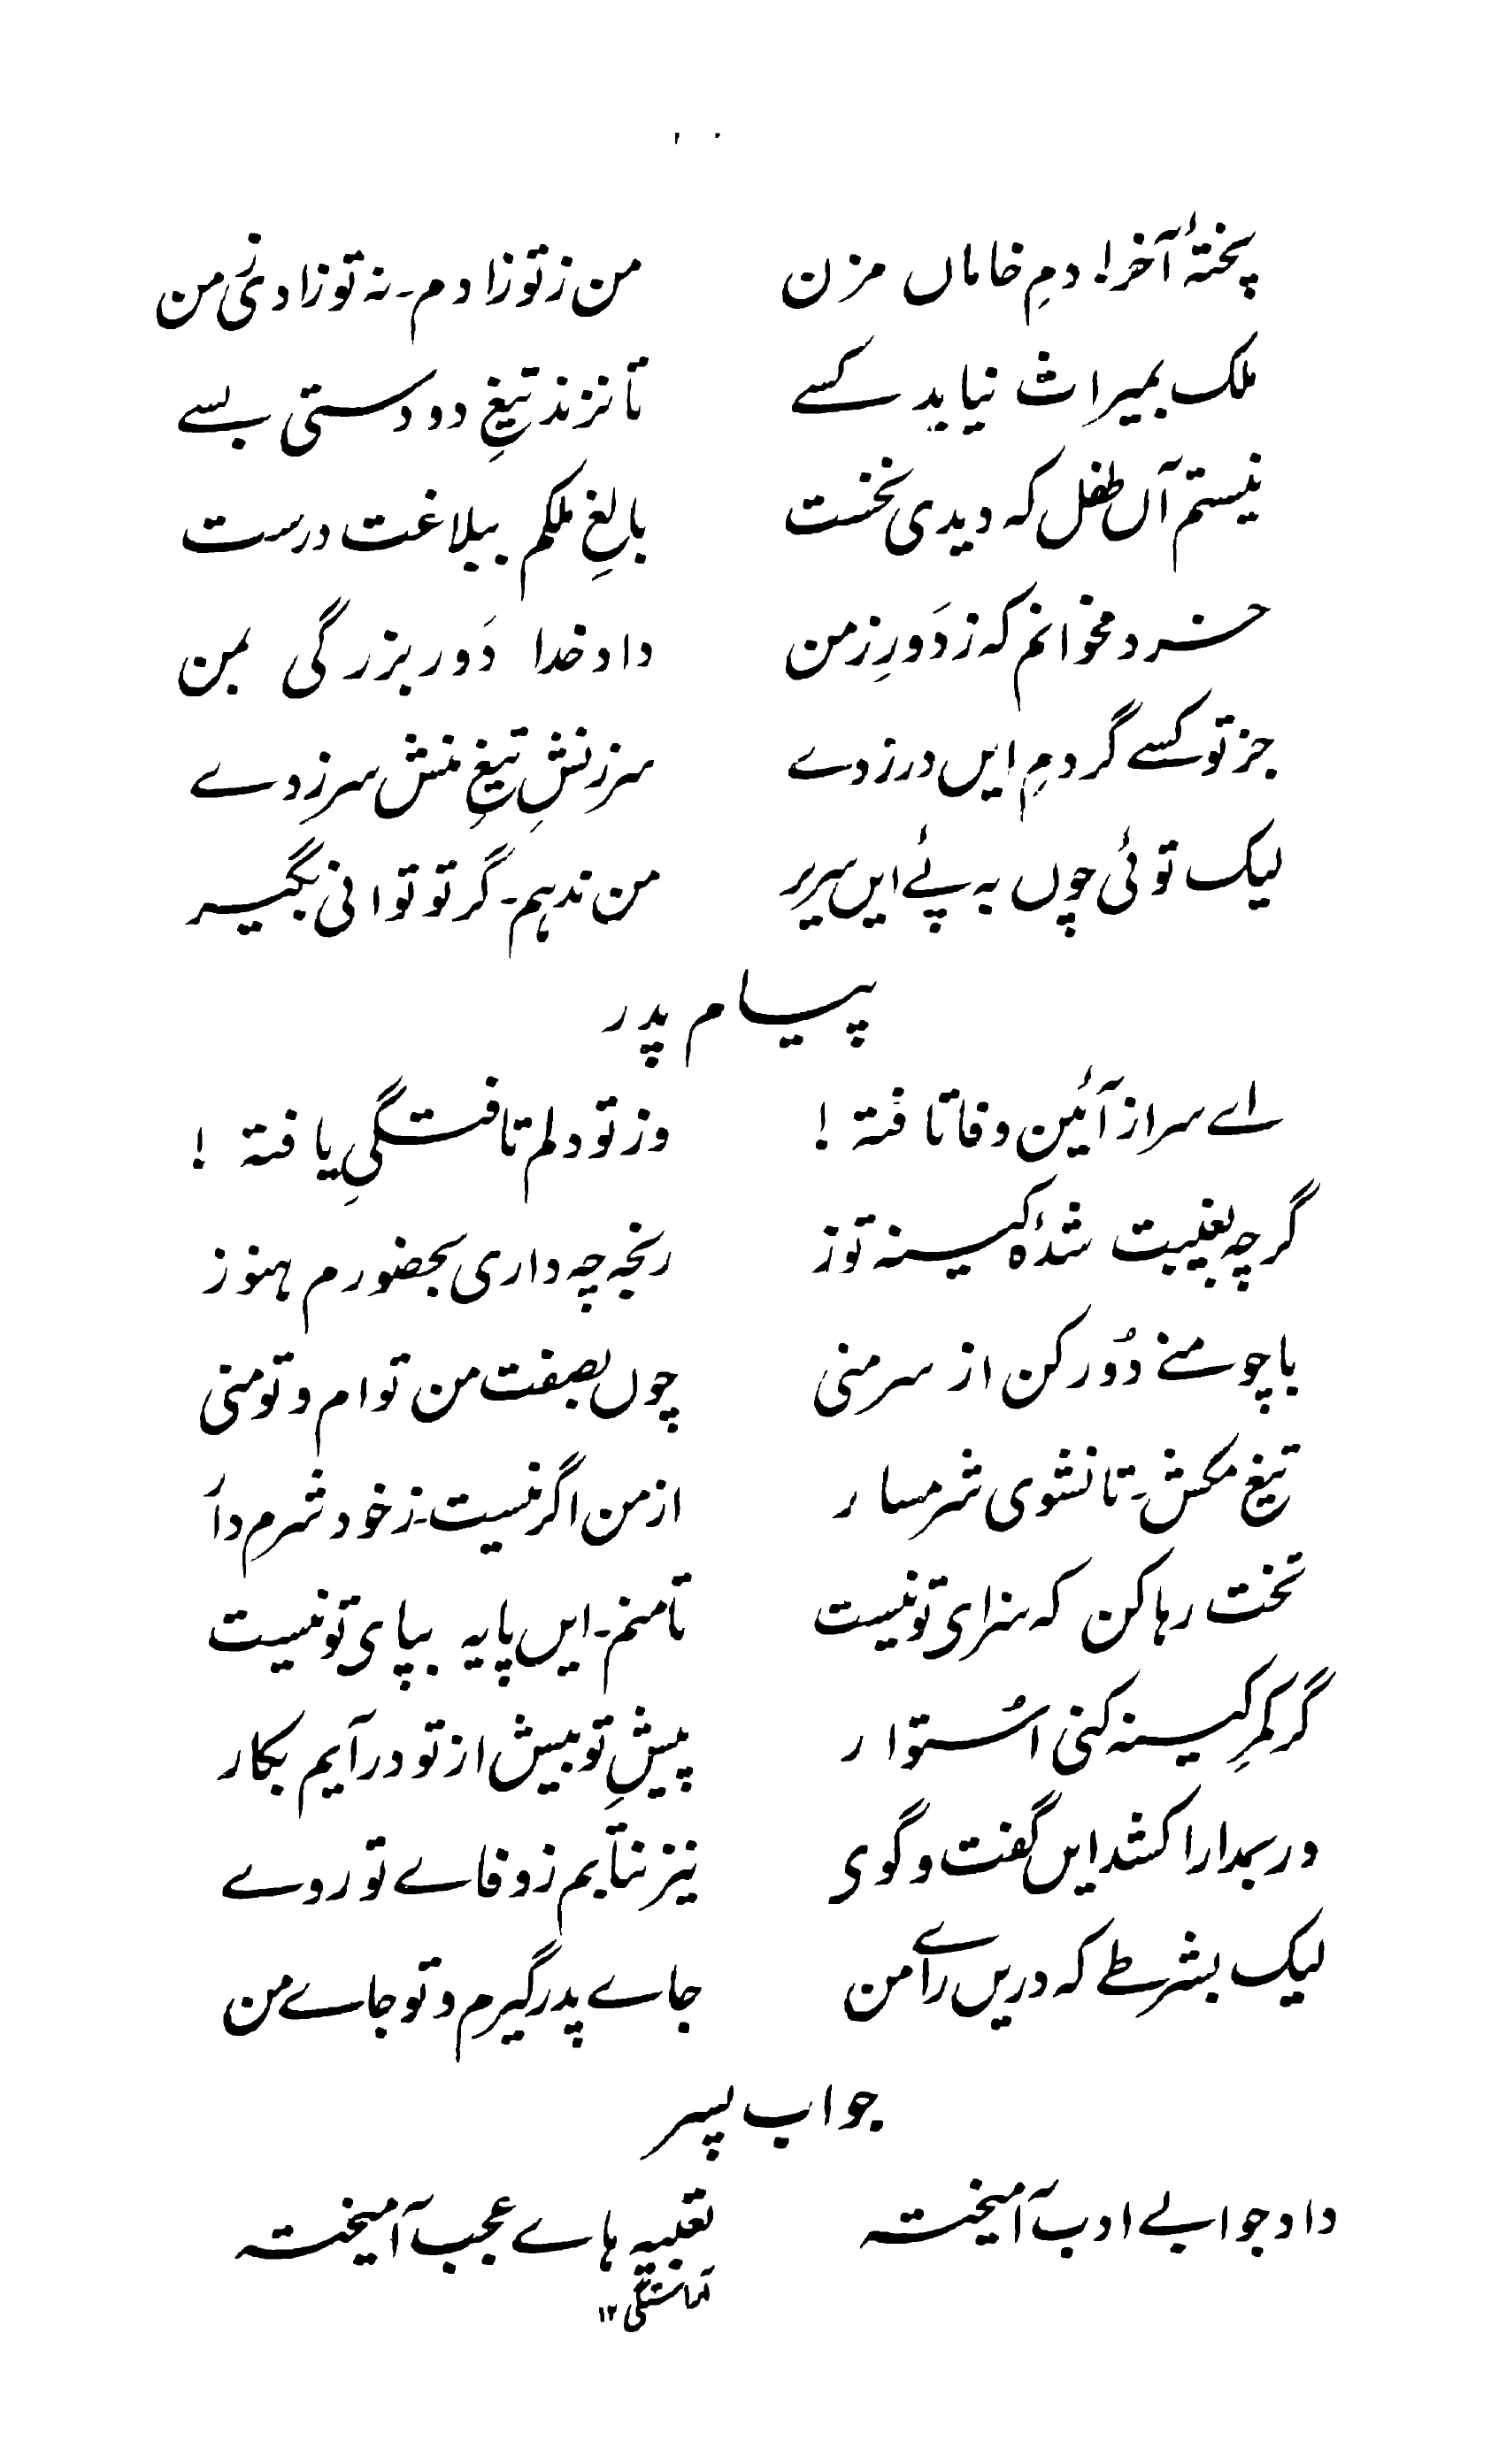 پختۂ آخر! دمِ خاماں مزن من ز تو زادم۔ نہ تو زادی ز من
ملک بمیراث نیابد کسے تا نزند تیغِ دو دستی بسے
نیستم آں طفل کہ دیدی نخست بالغِ ملکم ببلاغت درست
خرد مخوانم کہ ز دَورِ زمن داد خدا دَور بزرگی بمن
جز تو کسے گر دمِ ایں در زدے سرزنشِ تیغِ منش سر زدے
لیک توئی چوں بہ پئے ایں سریر من ندہم۔ گر تو توانی بگیر
پیام پدر
اے سر از آئین وفا تافتہ! وز تو دلم تافتگیِ یافتہ!
گرچہ بغیبت شدۂ کینہ توز رنجہ چہ داری بحضورم ہنوز
با چو منے دُور کن از سر منی چوں بصفت من توام و تو منی
تیغ مکش۔ تا نشوی شرمسار از من اگر نیست۔ ز خود شرم دار
تخت رہا کن کہ سزای تو نیست تا منم۔ ایں پایہ بپای تو نیست
گر کمرِ کینہ کنی اُستوار پیشِ تو بیش از تو درآیم بکار
ور بمدارا کشد ایں گفت و گوی نیز نتابم ز وفاے تو روے
لیک بشرطے کہ دریں راے من جاے پدر گیرم و تو جاے من
جواب پسر
داد جوابے ادب آمیختہ تعبیہ ہاے عجب آمیختہ
آراستگی ۱۲